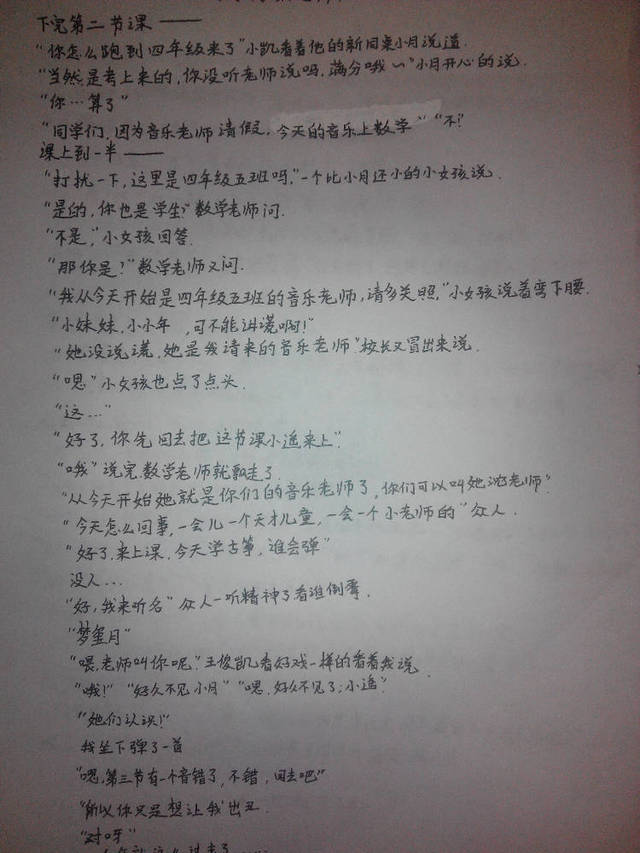 下完第二节课——
“你怎么跑到四年级来了”小凯看着他的新同桌小月说道.
“当然是考上来的,你没听老师说吗,满分哦~”小月开心的说.
“你…算了”
“同学们,因为音乐老师请假,今天的音乐上数学”“不!”
课上到一半——
“打扰一下,这里是四年级五班吗,”一个比小月还小的小女孩说.
“是的,你也是学生?”数学老师问.
“不是,”小女孩回答.
“那你是?”数学老师又问.
“我从今天开始是四年级五班的音乐老师,请多关照,”小女孩说着弯下腰.
“小妹妹,小小年,可不能讲谎啊!”
“她没说谎,她是我请来的音乐老师”校长又冒出来说.
“嗯”小女孩也点了点头.
“这...”
“好了,你先回去把这节课小遥来上”.
“哦”说完数学老师就飘走了.
“从今天开始她就是你们的音乐老师了,你们可以叫她 老师”.
“今天怎么回事,一会儿一个天才儿童,一会一个小老师的”众人.
“好了,来上课,今天学古筝,谁会弹”
没人...
“好,我来听名”众人一听精神了看谁倒霉.
“梦玺月”
“喂,老师叫你呢”王俊凯看好戏一样的看着我说.
“哦!”“好久不见小月”“嗯,好久不见了,小遥”
“她们认识!”
我坐下弹了一首
“嗯,第三节有一个音错了,不错,回去吧”
“所以你只是想让我出丑.
“对呀”